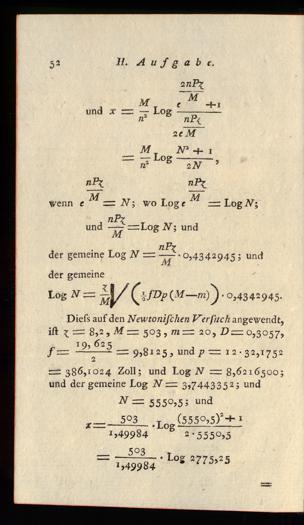 52 H. Aufgabe.
und x = M/n² Log (e^(2nPζ/M) + 1)/(2e^(nPζ/M))
= M/n² Log (N² + 1)/(2N),
wenn e^(nPζ/M) = N; wo Log e^(nPζ/M) = Log N;
und nPζ/M = Log N; und
der gemeine Log N = nPζ/M · 0,4342945; und
der gemeine
Log N = ζ/M √(½fDp(M—m)) · 0,4342945.
Dieſs auf den Newtoniſchen Verſuch angewendt,
iſt ζ = 8,2, M = 503, m = 20, D = 0,3057,
f = 19,625/2 = 9,8125, und p = 12 · 32,1752
= 386,1024 Zoll; und Log N = 8,6216500;
und der gemeine Log N = 3,7443352; und
N = 5550,5; und
x = 503/1,49984 · Log ((5550,5)² + 1)/(2 · 5550,5)
= 503/1,49984 · Log 2775,25
=